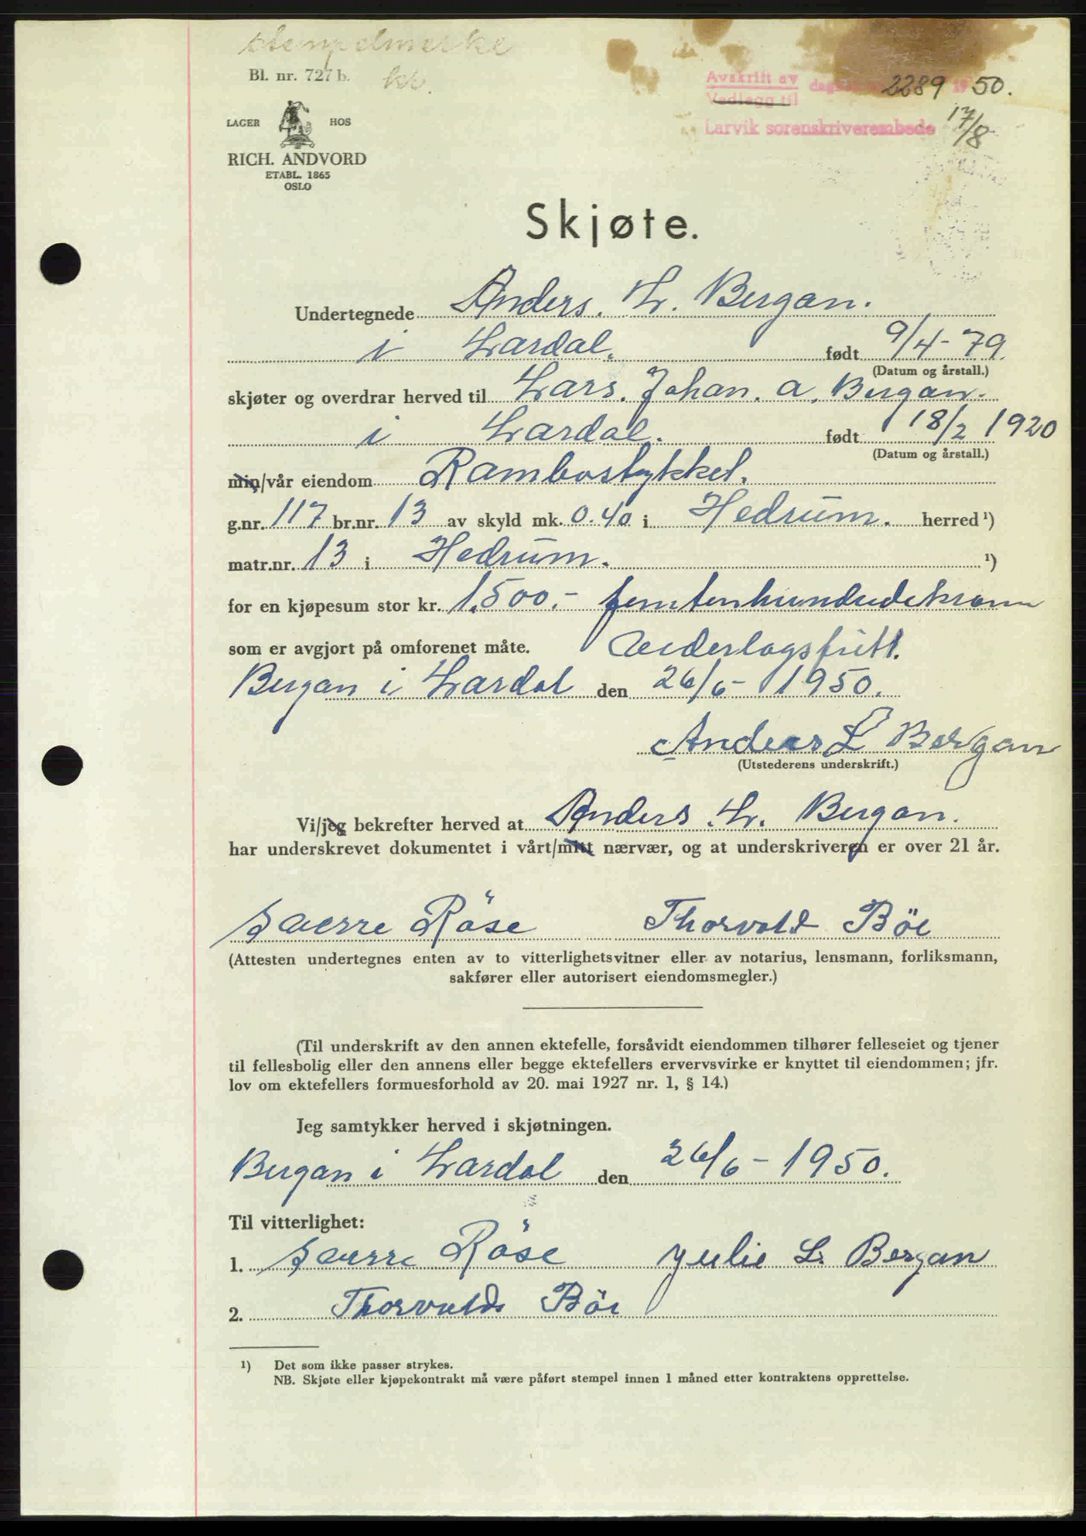 Stempelmerke
kr.
Bl. nr. 727 b.
LAGER HOS
RICH. ANDVORD
ETABL. 1865
OSLO
Avskrift av dagb. 2289 1950.
Vedlegg til
Larvik sorenskriverembede 17/8
Skjøte.
Undertegnede Anders. L. Bergan.
i Lardal. født 9/4-79.
(Datum og årstall.)
skjøter og overdrar herved til Lars. Johan. A. Bergan.
i Lardal. født 18/2 1920
(Datum og årstall.)
min/vår eiendom Rambostykket.
g.nr. 117 br.nr. 13 av skyld mk. 0.40 i Hedrum. herred ¹)
matr.nr. 13 i Hedrum. ¹)
for en kjøpesum stor kr. 1.500.- femtenhundredekroner
som er avgjort på omforenet måte. Vederlagsfritt.
Bergan i Lardal den 26/6-1950.
Anders L Bergan
(Utstederens underskrift.)
Vi/jeg bekrefter herved at Anders. L. Bergan.
har underskrevet dokumentet i vårt/mitt nærvær, og at underskriveren er over 21 år.
Sverre Röse Thorvald Böe
(Attesten undertegnes enten av to vitterlighetsvitner eller av notarius, lensmann, forliksmann,
sakfører eller autorisert eiendomsmegler.)
(Til underskrift av den annen ektefelle, forsåvidt eiendommen tilhører felleseiet og tjener
til fellesbolig eller den annens eller begge ektefellers ervervsvirke er knyttet til eiendommen; jfr.
lov om ektefellers formuesforhold av 20. mai 1927 nr. 1, § 14.)
Jeg samtykker herved i skjøtningen.
Bergan i Lardal den 26/6-1950.
Til vitterlighet:
1. Sverre Röse Julie L. Bergan
2. Thorvalds Böe
¹) Det som ikke passer strykes.
NB. Skjøte eller kjøpekontrakt må være påført stempel innen 1 måned etter kontraktens opprettelse.